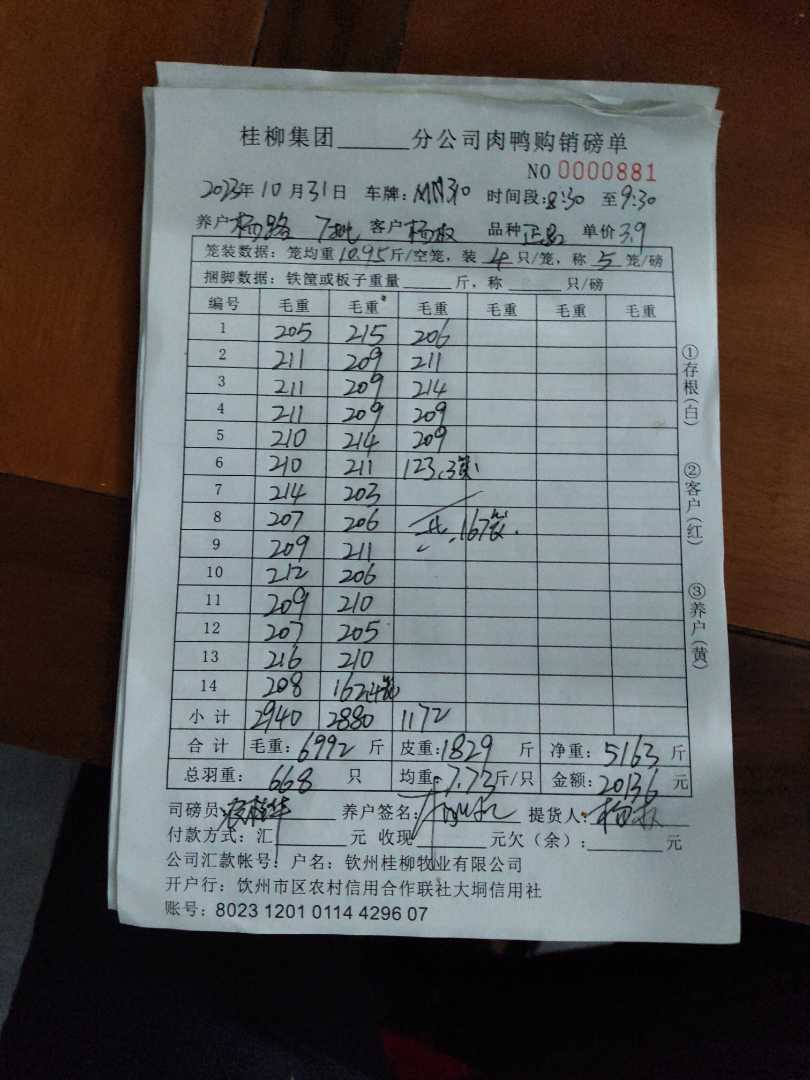 桂柳集团______分公司肉鸭购销磅单
NO 0000881
2023年10月31日 车牌: 时间段:8:30 至9:30
养户杨路 7批 客户杨叔 品种正品 单价3.9
笼装数据：笼均重10.95斤/空笼，装4只/笼，称5笼/磅
捆脚数据：铁筐或板子重量______斤，称______只/磅
编号 毛重 毛重 毛重 毛重 毛重 毛重
1 205 215 206
2 211 209 211
3 211 209 214
4 211 209 209
5 210 214 209
6 210 211 123.3笼
7 214 203
8 207 206 共.167笼.
9 209 211
10 212 206
11 209 210
12 207 205
13 216 210
14 208 162.4笼
小计 2940 2880 1172
合计 毛重:6992斤 皮重:1829斤 净重:5163斤
总羽重: 668 只 均重:7.73斤/只 金额:20136元
司磅员: 养户签名: 提货人:
付款方式:汇______元 收现______元欠（余）:______元
公司汇款帐号：户名：钦州桂柳牧业有限公司
开户行：饮州市区农村信用合作联社大垌信用社
账号：8023 1201 0114 4296 07
①存根(白)
②客户(红)
③养户(黄)